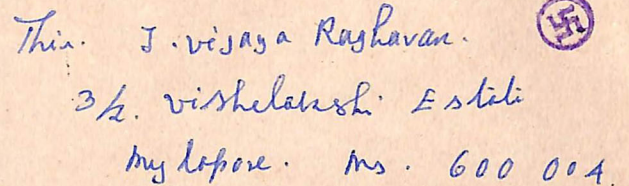 Thiru. J. Vijaya Raghavan.
3/2. Vishelakshi Estate
Mylapore. Ms. 600 004.